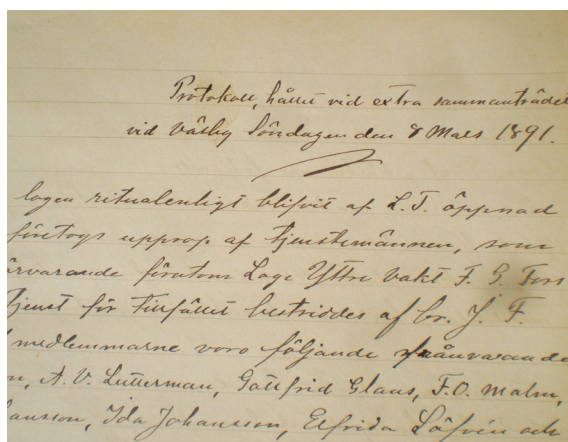 Protokoll, hållet vid extra sammanträdet
vid Väsby Söndagen den 8 Mars 1891.
logen ritualenligt blifvit af L.T. öppnad
företogs upprop af tjenstemännen, som
ärvarande förutom Loge Yttre Vakt F. G. Fors
tjenst för tillfället bestriddes af br. J. F.
medlemmarne voro följande frånvarande
n, A. V. Lutterman, Gottfrid Glans, F.O. Malm,
hansson, Ida Johansson, Elfrida Löfvén och